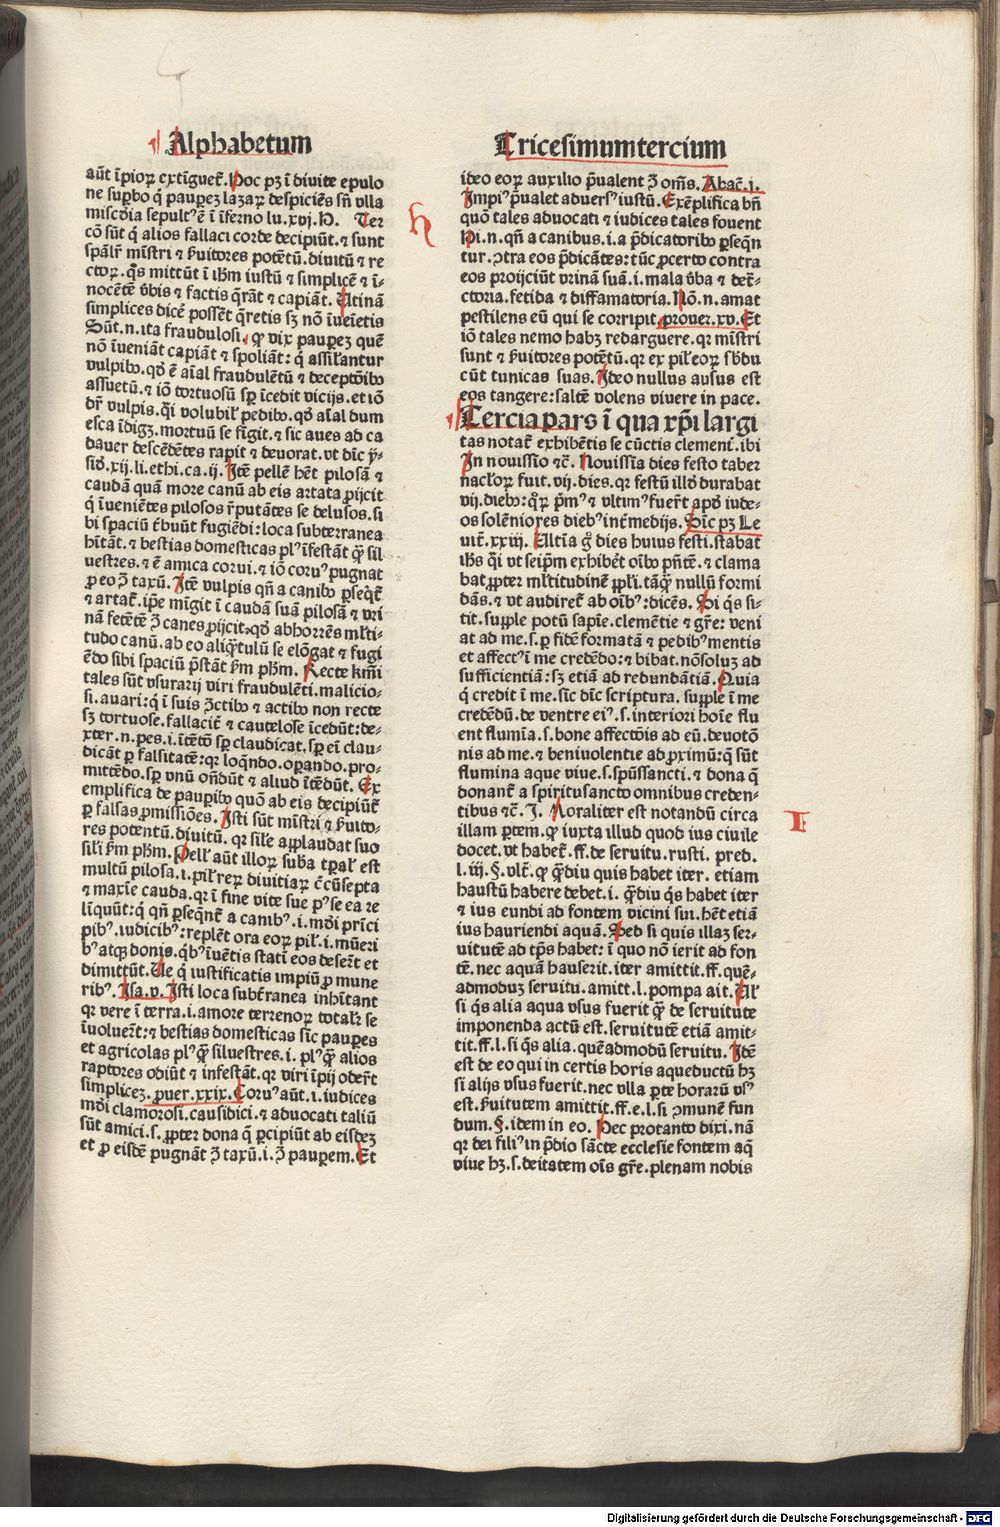 Alphabetum
aūt īpioꝝ extīguet᷑. Hoc pꝫ ī divite epulo
ne suꝑbo q̄ pauꝑeꝫ lazaꝝ despiciēs sn̄ vlla
miscd̓ia sepultꝰ ē ī īferno lu.xvj.H. Ter
cō sūt q̄ alios fallaci corde decipiūt.⁊ sunt
spāl̓r mīstri ⁊ ẜuitores potētū.divitū ⁊ re
ctoꝝ.q̄s mittūt ī ibm̄ iustū ⁊ simplicē ⁊ ī-
nocētē v̓bis ⁊ factis q̄rāt ⁊ capiāt. Utinā
simplices dicē possēt q̄retis sꝫ nō īueīetis
Sūt.n.ita fraudulosi. ꝙ vix pauꝑeꝫ quē
nō īveniāt capiāt ⁊ spoliāt: q̄ assil̓antur
vulpibꝰ.qd̓ ē aīal fraudulētū ⁊ deceptōibꝰ
assuetū.⁊ iō tortuosū sꝑ īcedit vicijs.et iō
dr̄ vulpis.q̄i volubil̓ pedibꝰ.qd̓ aīal dum
esca īdigꝫ.mortuū se fīgit.⁊ sic aues ad ca
dauer descēdētes rapit ⁊ deuorat.vt dīc ẏ-
sid̓.xij.li.ethi.ca.ij. Itē pellē hēt pilosā ⁊
caudā quā more canū ab eis artata ꝓijcit
q̄ īueniētes pilosos r̄putātes se delusos.si
bi spaciū t̓buūt fugiēdi: loca subterranea
hītāt.⁊ bestias domesticas plꝰ īfestāt q̄ꝫ sil
uestres.⁊ ē amica corui.⁊ iō coruꝰ pugnat
ꝓ eo ↄ̄ taxū. Itē vulpis qn̄ a canibꝰ ꝑseq̄t᷑
⁊ artat᷑.ip̄e mīgit ī caudā suā pilosā ⁊ vri
nā fetētē ↄ̄ canes ꝓijcit.qd̓ abhorrēs ml̓ti-
tudo canū.ab eo aliq̄tulū se elōgat ⁊ fugi
ēdo sibi spaciū p̄stāt ẜm pḣm. Recte ẜmi
tales sūt vsurarij viri fraudulēti.malicio-
si.auari: q̄ ī suis ↄ̄ctibꝰ ⁊ actibꝰ non recte
sꝫ tortuose.fallacit᷑ ⁊ cautelose īcedūt: de-
xter.n.pes.i.ītētō sꝑ claudicat.sꝑ eī clau-
dicāt ꝑ falsitatē: qꝛ loq̄ndo.oꝛando.pro-
mittēdo.sꝑ vnū on̄dūt ⁊ aliud ītēdūt. Ex
emplifica de pauꝑibꝰ quō ab eis decipiūt᷑
ꝑ falsas ꝓmissiōes. Isti sūt mīstri ⁊ ẜuito-
res potentū.divitū. qꝛ sil̓e applaudat suo
sil̓i ẜm pḣm. Pell̓ aūt illoꝝ sub̓a tꝑal̓ est
multū pilosa.i.pil̓ reꝝ divitiaꝝ c̄cūsepta
⁊ maxīe cauda.qꝛ ī fine vite sue pꝰse ea re
līquūt: q̄ qn̄ ꝑseqn̄t᷑ a canibꝰ.i.mōi prīci
pibꝰ.iudicibꝰ: replēt ora eoꝝ pil̓.i.mūeri
bꝰ atqꝫ donis.qḃꝰ īuētis statī eos deser̄t et
dimittūt. Ue q̄ iustificatis impiū ꝓ mune
ribꝰ. Isa.v. Isti loca subt᷑ranea inhītant
qꝛ vere ī terra.i.amore terrenoꝝ total̓r se
īuoluer̄t: ⁊ bestias domesticas sīc pauꝑes
et agricolas plꝰ q̄ꝫ siluestres.i.plꝰ q̄ꝫ alios
raptores odiūt ⁊ infestāt.qꝛ viri īpij oder̄t
simpliceꝫ.ꝓuer.xxix. Coruꝰ aūt.i.iudices
mōi clamorosi.causidici.⁊ advocati taliū
sūt amici.s.ꝓpter dona q̄ ꝑcipiūt ab eisdeꝫ
et ꝓ eisdē pugnāt ↄ̄ taxū.i.ↄ̄ pauꝑem. Et
h
Tricesimumtercium
ideo eoꝝ auxilio p̄ualent ↄ̄ om̄s. Abac̄.j.
Impiꝰ p̄ualet adversꝰ iustū. Exēplifica bn̄
quō tales advocati ⁊ iudices tales fouent
Hi.n.qn̄ a canibus.i.a p̄dicatoribꝰ ꝑseqn̄
tur.ↄtra eos p̄dicātes: tūc ꝓcerto contra
eos proijciūt vrinā suā.i.mala v̓ba ⁊ detr̄-
ctoria.fetida ⁊ diffamatoria. Nō.n.amat
pestilens eū qui se corripit.prouer.xv. Et
iō tales nemo habꝫ redarguere.qꝛ mīstri
sunt ⁊ ẜuitores potētū.qꝛ ex pil̓ eoꝝ sb̓du
cūt tunicas suas. Ideo nullus ausus est
eos tangere: saltē volens vivere in pace.
Tercia pars ī qua xp̄i largi
tas notat᷑ exhibētis se cūctis clement᷑.ibi
In novissīo ⁊c̄. Novissīa dies festo taber
nacl̓oꝝ fuit.vij.dies.qꝛ festū illd̓ durabat
vij.diebꝰ: q̄ꝝ p̄mꝰ ⁊ vltimꝰ fuer̄t apd̓ iude-
os solēniores diebꝰ int᷑medijs. Sīc pꝫ Le
uit᷑.xxiij. Ultīa g̊ dies huius festi.stabat
ih̄s q̄i vt seip̄m exhibēt oībꝰ pn̄tē.⁊ clama
bat ꝓpter ml̓titudinē ppl̓i.tāq̄ꝫ nullū formi
dās.⁊ vt audiret᷑ ab oībꝰ: dicēs. Si q̄s si-
tit.supple potū sapīe.clemētie ⁊ gr̄e: veni
at ad me.s.ꝑ fidē formatā ⁊ pedibꝰ mentis
et affectꝰ ī me credēdo: ⁊ bibat.nōsoluꝫ ad
sufficientiā: sꝫ etiā ad redundātiā. Quia
q̄ credit ī me.sīc dīc scriptura. supple ī me
credēdū.de ventre eiꝰ.s.interiori hoīe flu
ent flumīa.s.bone affectōis ad eū.deuotō
nis ad me.⁊ beniuolentie ad ꝓximū: q̄ sūt
flumina aque viue.s.sp̄ūssancti.⁊ dona q̄
donant᷑ a spiritusancto omnibus creden-
tibus ⁊c̄. J. Moraliter est notandū circa
illam ꝑtem.ꝙ iuxta illud quod ius ciuile
docet.vt habet᷑.ff.de seruitu.rusti. pred.
l.iij.§.vlt᷑.ꝙ q̄ꝫdiu quis habet iter. etiam
haustū habere debet.i. q̄ꝫdiu q̄s habet iter
⁊ ius eundi ad fontem vicini sui.hēt etiā
ius hauriendi aquā. Sed si quis illaꝫ ser-
vitutē ad tp̄s habet: ī quo nō ierit ad fon
tē.nec aquā hauserit.iter amittit.ff.quē-
admoduꝫ servitu.amitt.l.pompa ait. Al̓
si q̄s alia aqua vsus fuerit q̄ꝫ de servitute
imponenda actū est.servitutē etiā amit-
tit.ff.l.si q̄s alia.quēadmodū servitu. Idē
est de eo qui in certis horis aqueductū hꝫ
si alijs vsus fuerit.nec vlla ꝑte horarū vsꝰ
est.ẜuitutem amittit.ff.e.l.si ↄmunē fun
dum.§.idem in eo. Hec protanto dixi.nā
qꝛ dei filiꝰ in p̄dio sācte ecclesie fontem aq̄
viue hꝫ.s.deitatem oīs gr̄e.plenam nobis
I
Digitalisierung gefördert durch die Deutsche Forschungsgemeinschaft - DFG